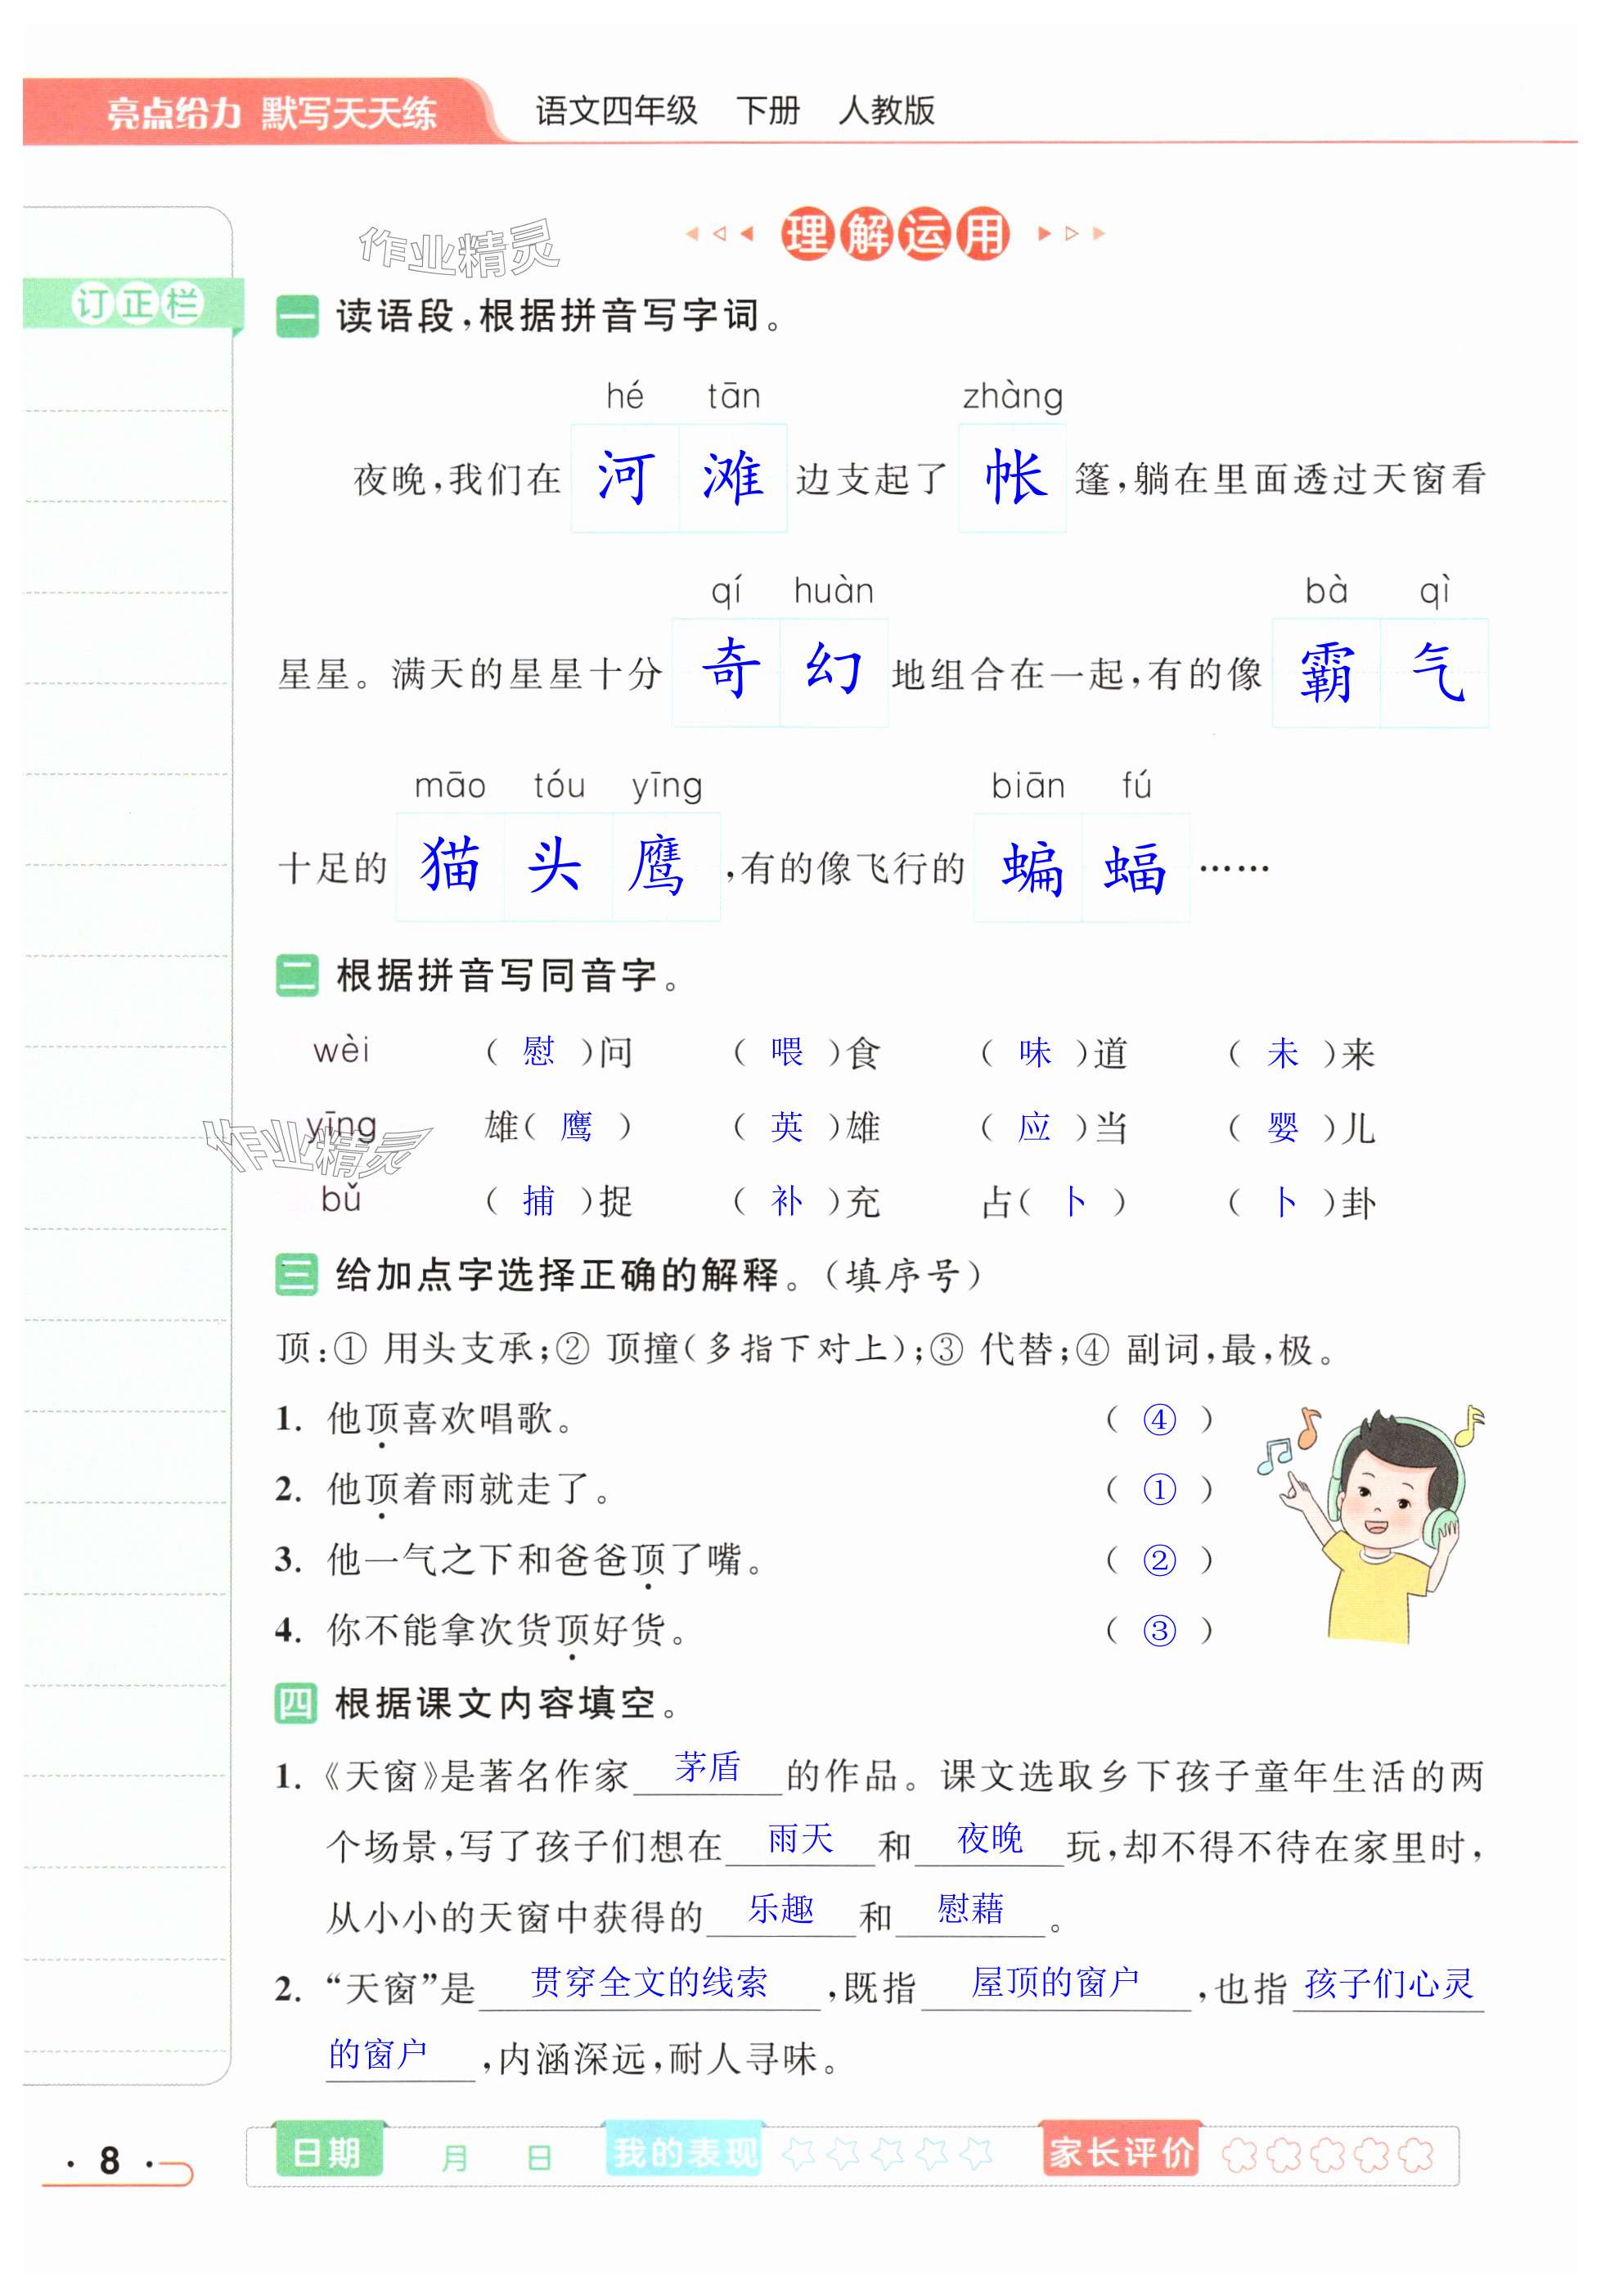 亮点给力 默写天天练 语文四年级 下册 人教版
作业精灵
理解运用
订正栏
一 读语段，根据拼音写字词。
hé tān zhàng
夜晚，我们在河滩边支起了帐篷，躺在里面透过天窗看
qí huàn bà qì
星星。满天的星星十分奇幻地组合在一起，有的像霸气
māo tóu yīng biān fú
十足的猫头鹰，有的像飞行的蝙蝠……
二 根据拼音写同音字。
wèi （慰）问 （喂）食 （味）道 （未）来
yīng 雄（鹰） （英）雄 （应）当 （婴）儿
作业精灵
bǔ （捕）捉 （补）充 占（卜） （卜）卦
三 给加点字选择正确的解释。（填序号）
顶：① 用头支承；② 顶撞（多指下对上）；③ 代替；④ 副词，最，极。
1. 他顶喜欢唱歌。 （④）
2. 他顶着雨就走了。 （①）
3. 他一气之下和爸爸顶了嘴。 （②）
4. 你不能拿次货顶好货。 （③）
四 根据课文内容填空。
1.《天窗》是著名作家茅盾的作品。课文选取乡下孩子童年生活的两
个场景，写了孩子们想在雨天和夜晚玩，却不得不待在家里时，
从小小的天窗中获得的乐趣和慰藉。
2. “天窗”是贯穿全文的线索，既指屋顶的窗户，也指孩子们心灵
的窗户，内涵深远，耐人寻味。
· 8 · 日期 月 日 我的表现 家长评价